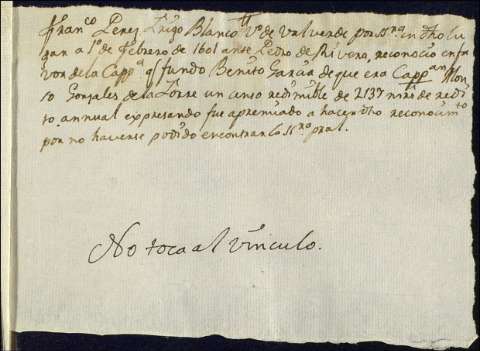 Fran.co Perez Trigo Blanco V.o de Valverde por ss.ra en dho lu
gar a 1.o de Febrero de 1601 ante Pedro de Rivera, reconocio en fa
vor de la Capp.a q fundo Benito Garcia de que era Capp.an Alon
so Gonzales de la Torre un censo redimible de 2137 mrs de redi
to annual expresando fue apremiado a hacer dho reconocim.to
por no haverse podido encontrar la ss.ra pral.
No toca al vinculo.